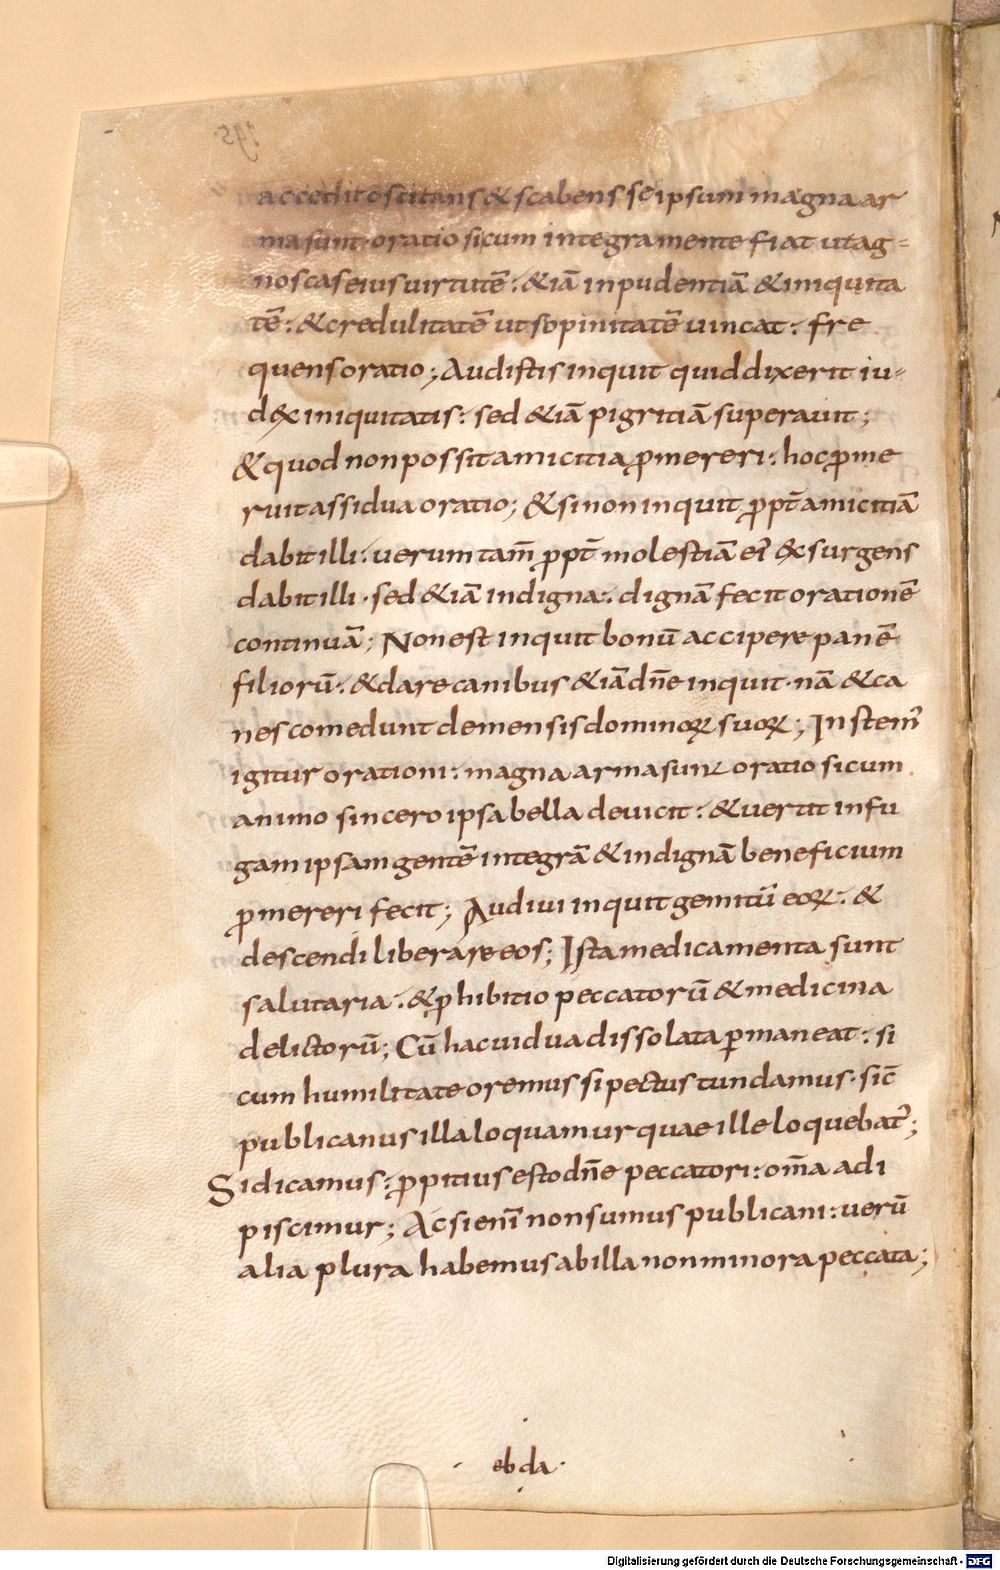 accedit oscitans & scabens se ipsum magna ar
ma sunt· oratio si cum integra mente fiat ut ag-
noscas eius uirtutē: &iā inpudentiā & iniquita
tē: & credulitatē ut sopinitatē uincat: fre
quens oratio; Audistis inquit quid dixerit iu-
dex iniquitatis: sed &iā pigritiā superauit;
& quod non possit amicitia ꝓmereri: hoc ꝓme
ruit assidua oratio; & si non inquit ꝓpt̄ amicitiā
dabit illi: uerum tam̄ ꝓpt̄ molestiā ei' exsurgens
dabit illi· sed &iā indigna: dignā fecit orationē
continuā; Non est inquit bonū accipere panē
filiorū: & dare canibus &iā dn̄e inquit· nā & ca
nes comedunt de mensis dominoꝝ suoꝝ; Instem'
igitur orationi: magna arma sunt oratio si cum
animo sincero ipsa bella deuicit: & uertit in fu
gam ipsam gentē integrā & indignā beneficium
ꝓmereri fecit; Audiui inquit gemitū eoꝝ: &
descendi liberare eos; Ista medicamenta sunt
salutaria: & ꝓhibitio peccatorū & medicina
delictorū; Cū hac uidua dissolata ꝑmaneat: si
cum humilitate oremus si pectus tundamus· sic̄
publicanus illa loquamur quae ille loquebat';
Si dicamus: ꝓpitius esto dn̄e peccatori: om̄a adi
piscimur; Ac si enī non sumus publicani: uerū
alia plura habemus ab illa non minora peccata;
· eb da ·
Digitalisierung gefördert durch die Deutsche Forschungsgemeinschaft - DFG